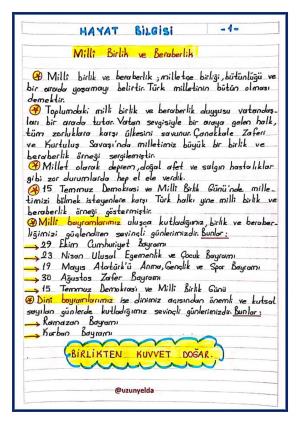 HAYAT BİLGİSİ -1-
Milli Birlik ve Beraberlik
Milli birlik ve beraberlik; milletçe birliği, bütünlüğü ve
bir arada yaşamayı belirtir. Türk milletinin bütün olması
demektir.
Toplumdaki milli birlik ve beraberlik duygusu vatandaş-
ları bir arada tutar. Vatan sevgisiyle bir araya gelen halk,
tüm zorluklara karşı ülkesini savunur. Çanakkale Zaferi
ve Kurtuluş Savaşı'nda milletimiz büyük bir birlik ve
beraberlik örneği sergilemiştir.
Millet olarak deprem, doğal afet ve salgın hastalıklar
gibi zor durumlarda hep el ele verdik.
15 Temmuz Demokrasi ve Milli Birlik Günü'nde mille-
timizi bölmek isteyenlere karşı Türk halkı yine milli birlik ve
beraberlik örneği göstermiştir.
Milli bayramlarımız ulusça kutladığımız, birlik ve beraber-
liğimizi güçlendiren sevinçli günlerimizdir. Bunlar:
29 Ekim Cumhuriyet Bayramı
23 Nisan Ulusal Egemenlik ve Çocuk Bayramı
19 Mayıs Atatürk'ü Anma, Gençlik ve Spor Bayramı
30 Ağustos Zafer Bayramı
15 Temmuz Demokrasi ve Milli Birlik Günü
Dini bayramlarımız ise dinimiz açısından önemli ve kutsal
sayılan günlerde kutladığımız sevinçli günlerimizdir. Bunlar:
Ramazan Bayramı
Kurban Bayramı
BİRLİKTEN KUVVET DOĞAR.
@uzunyelda